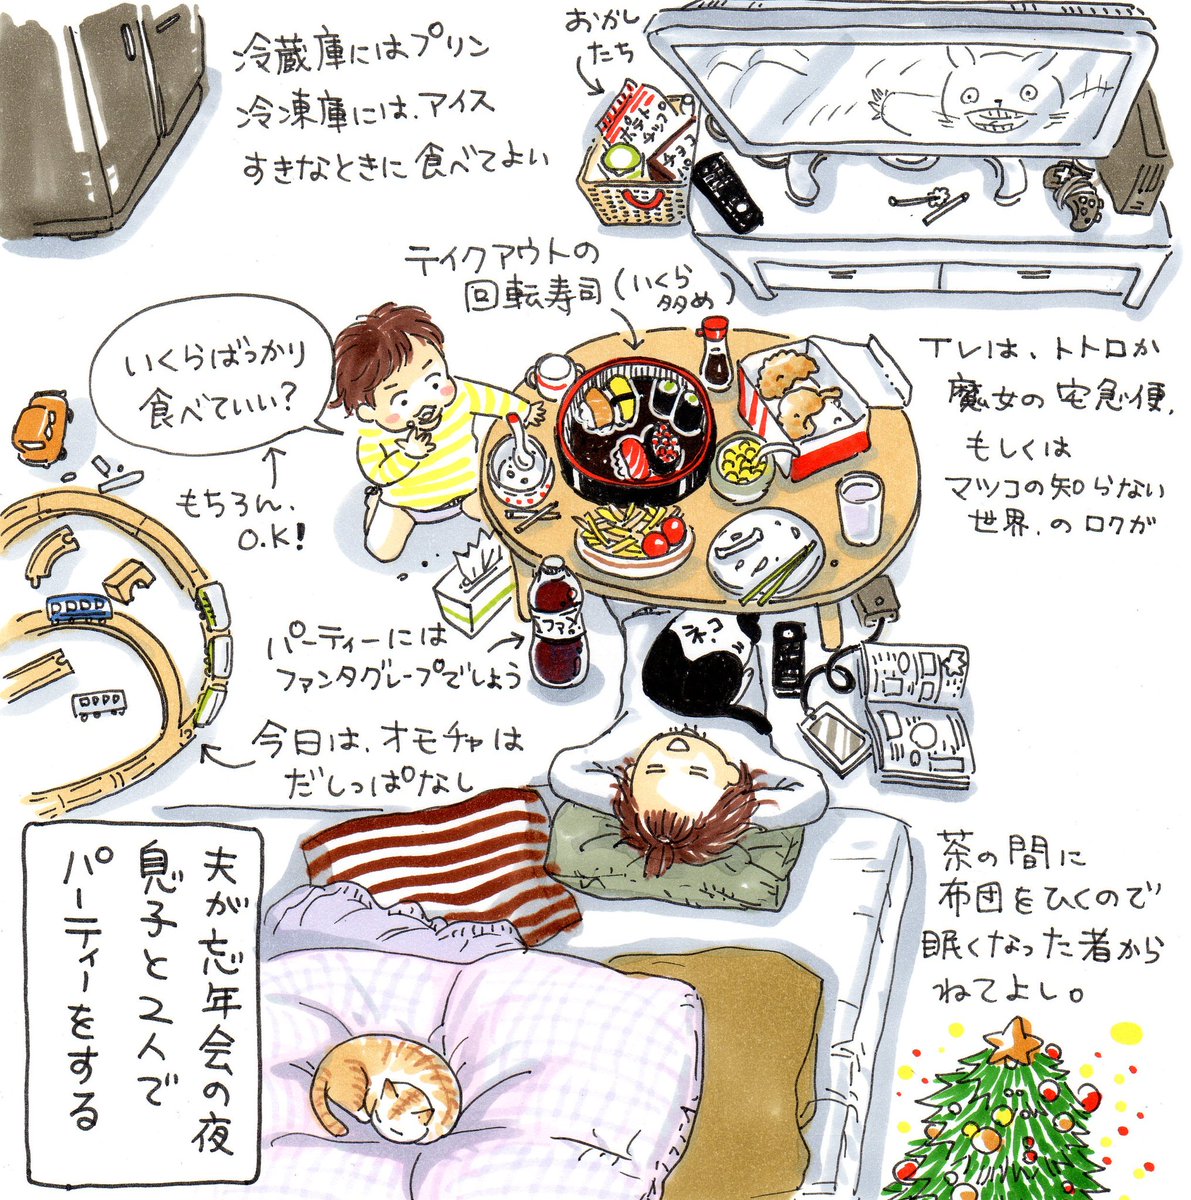 冷蔵庫にはプリン
冷凍庫には、アイス
すきなときに食べてよい
おかし
たち
ポテト
チップ
チョコ
テイクアウトの
回転寿司(いくら
多め)
いくらばっかり
食べていい?
もちろん、
O.K!
TVは、トトロか
魔女の宅急便、
もしくは
マツコの知らない
世界、のロクガ
ネコ
ファンタ
パーティーには
ファンタグレープでしょう
今日は、オモチャは
だしっぱなし
夫が忘年会の夜
息子と2人で
パーティーをする
茶の間に
布団をひくので
眠くなった者から
ねてよし。